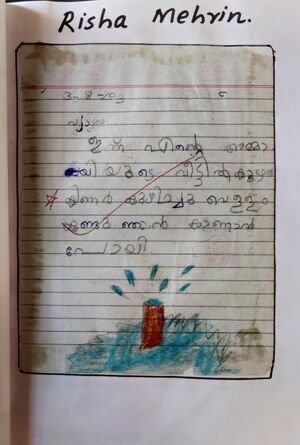 Risha Mehrin.
3-8-203
വ്യാഴം
ഇന്ന് എന്റെ അമ്മാ
യിയുടെ വീട്ടിൽ കുഴൽ
കിണർ കുഴിച്ചു വെള്ളം
കണ്ടു ഞാൻ കാണാൻ
പോയി